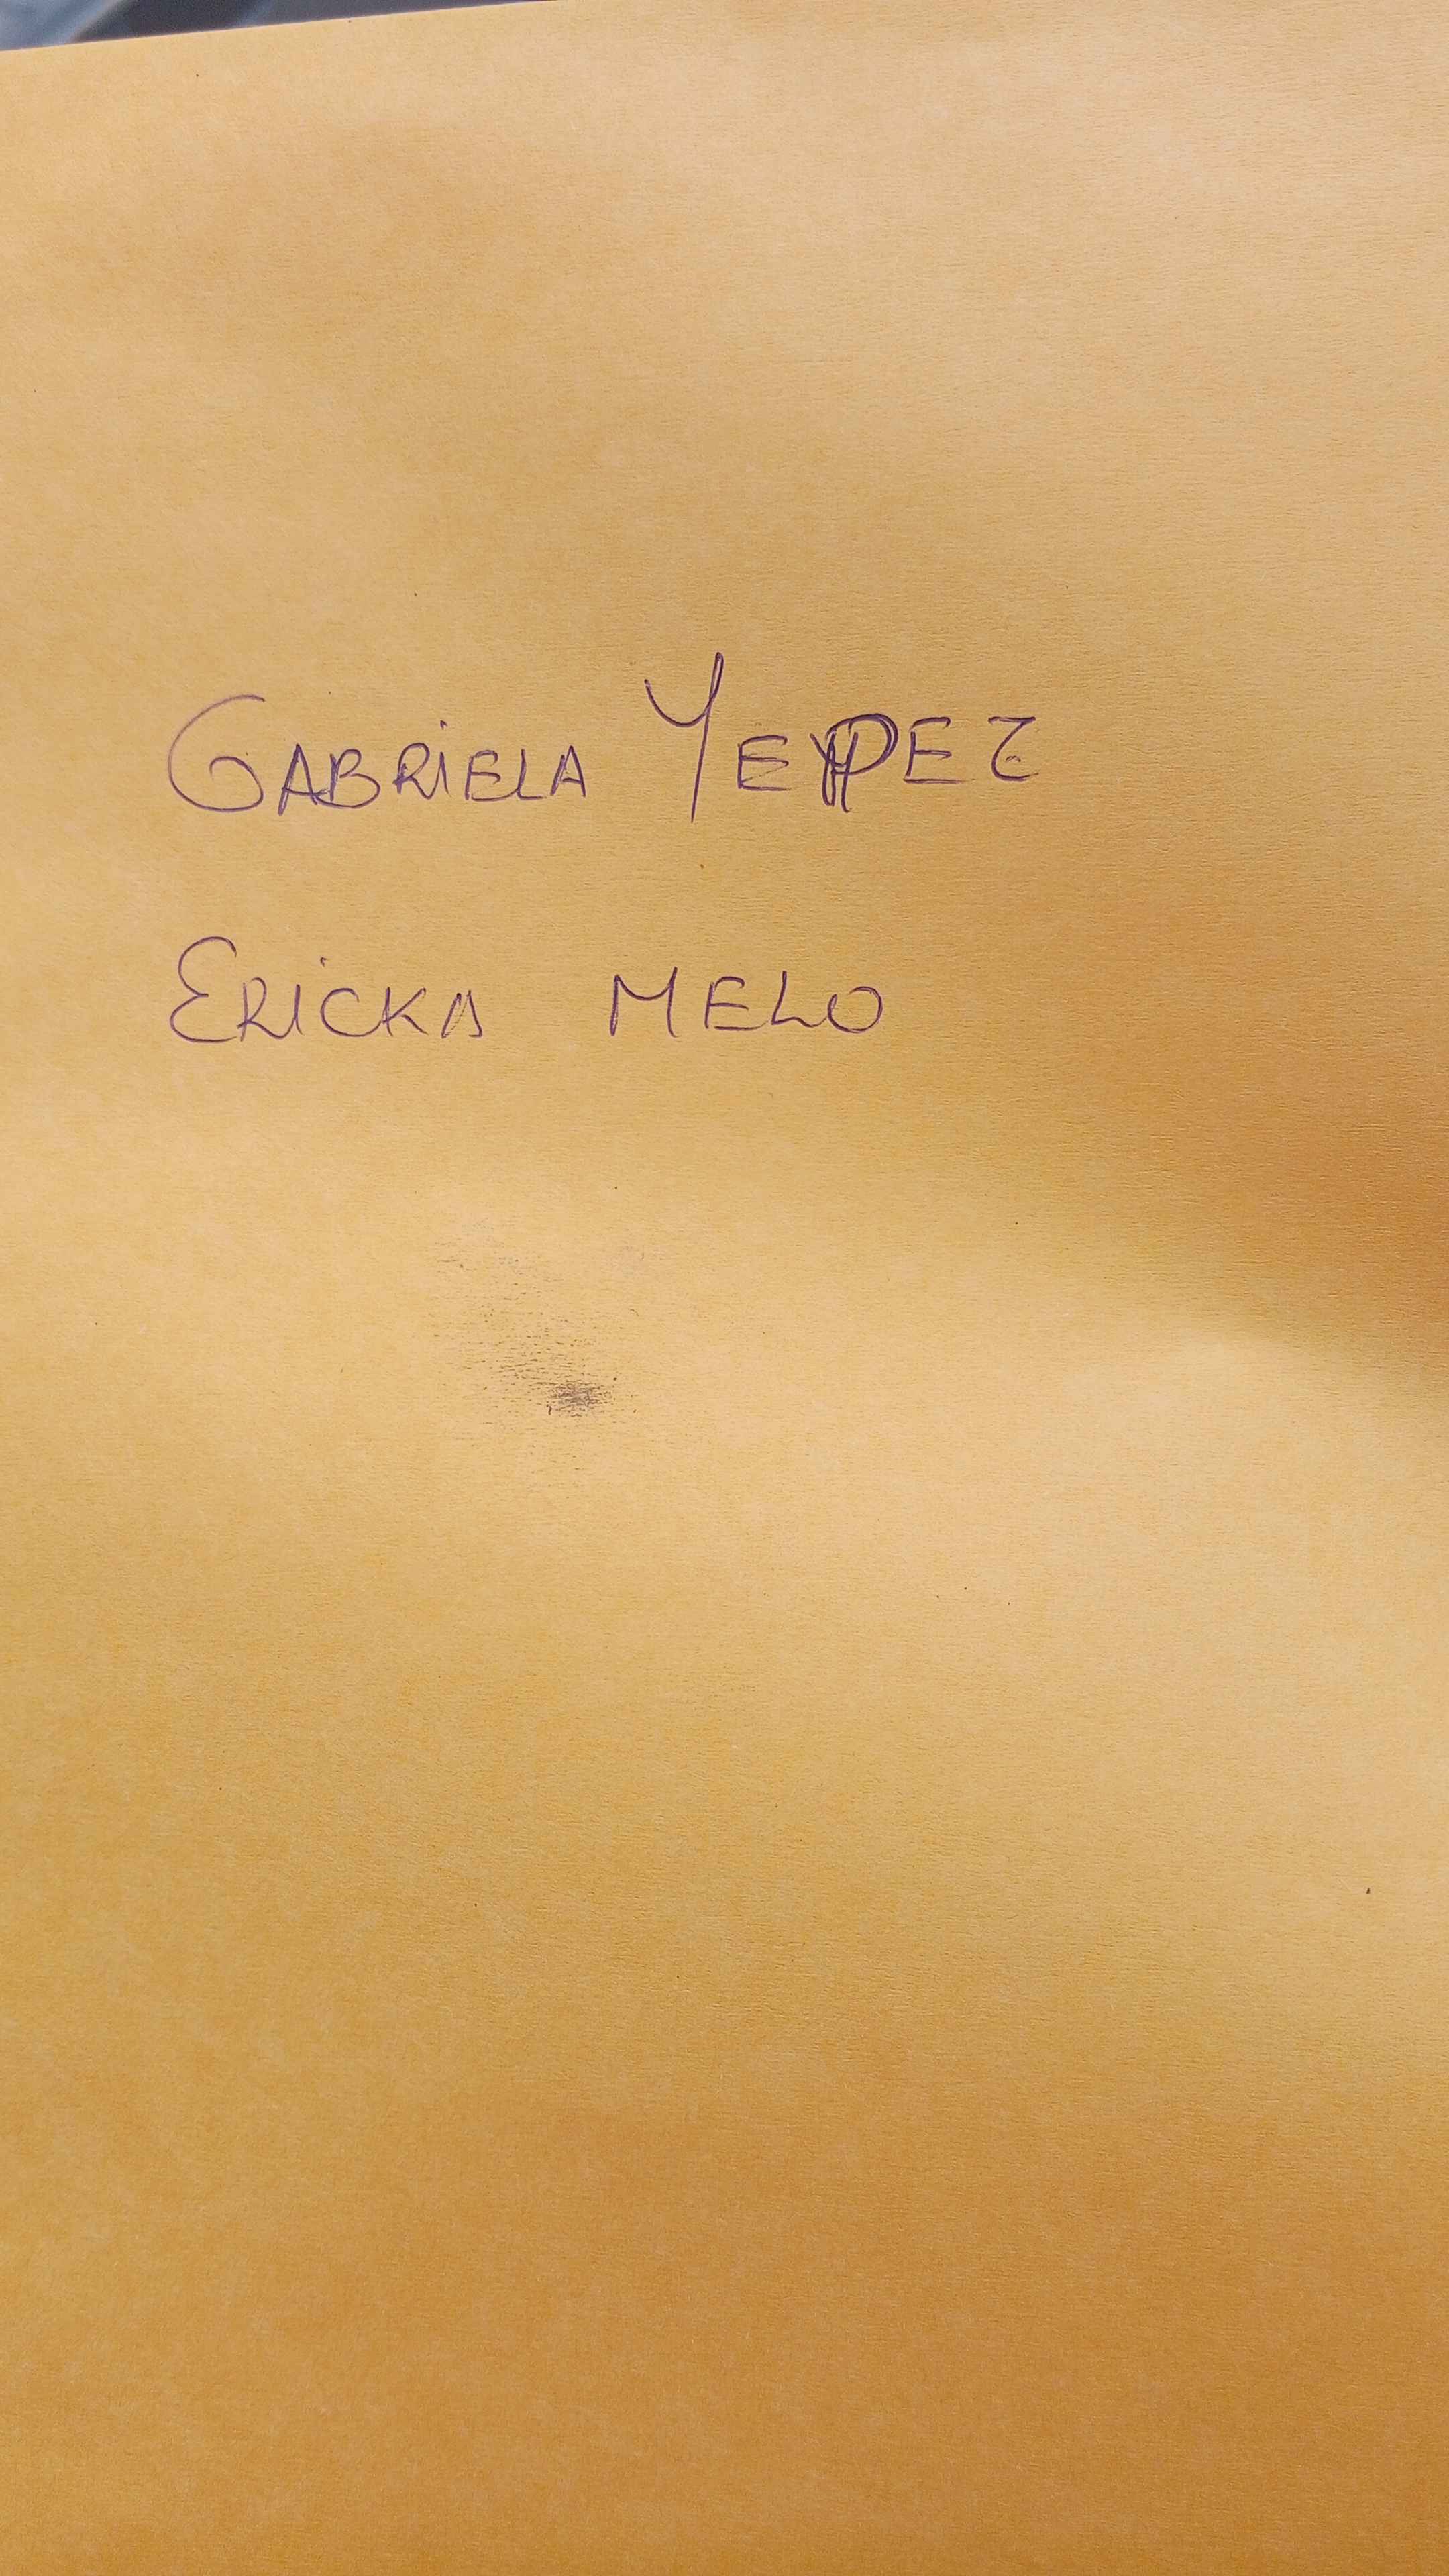 GABRIELA YEPEZ
ERICKA MELO